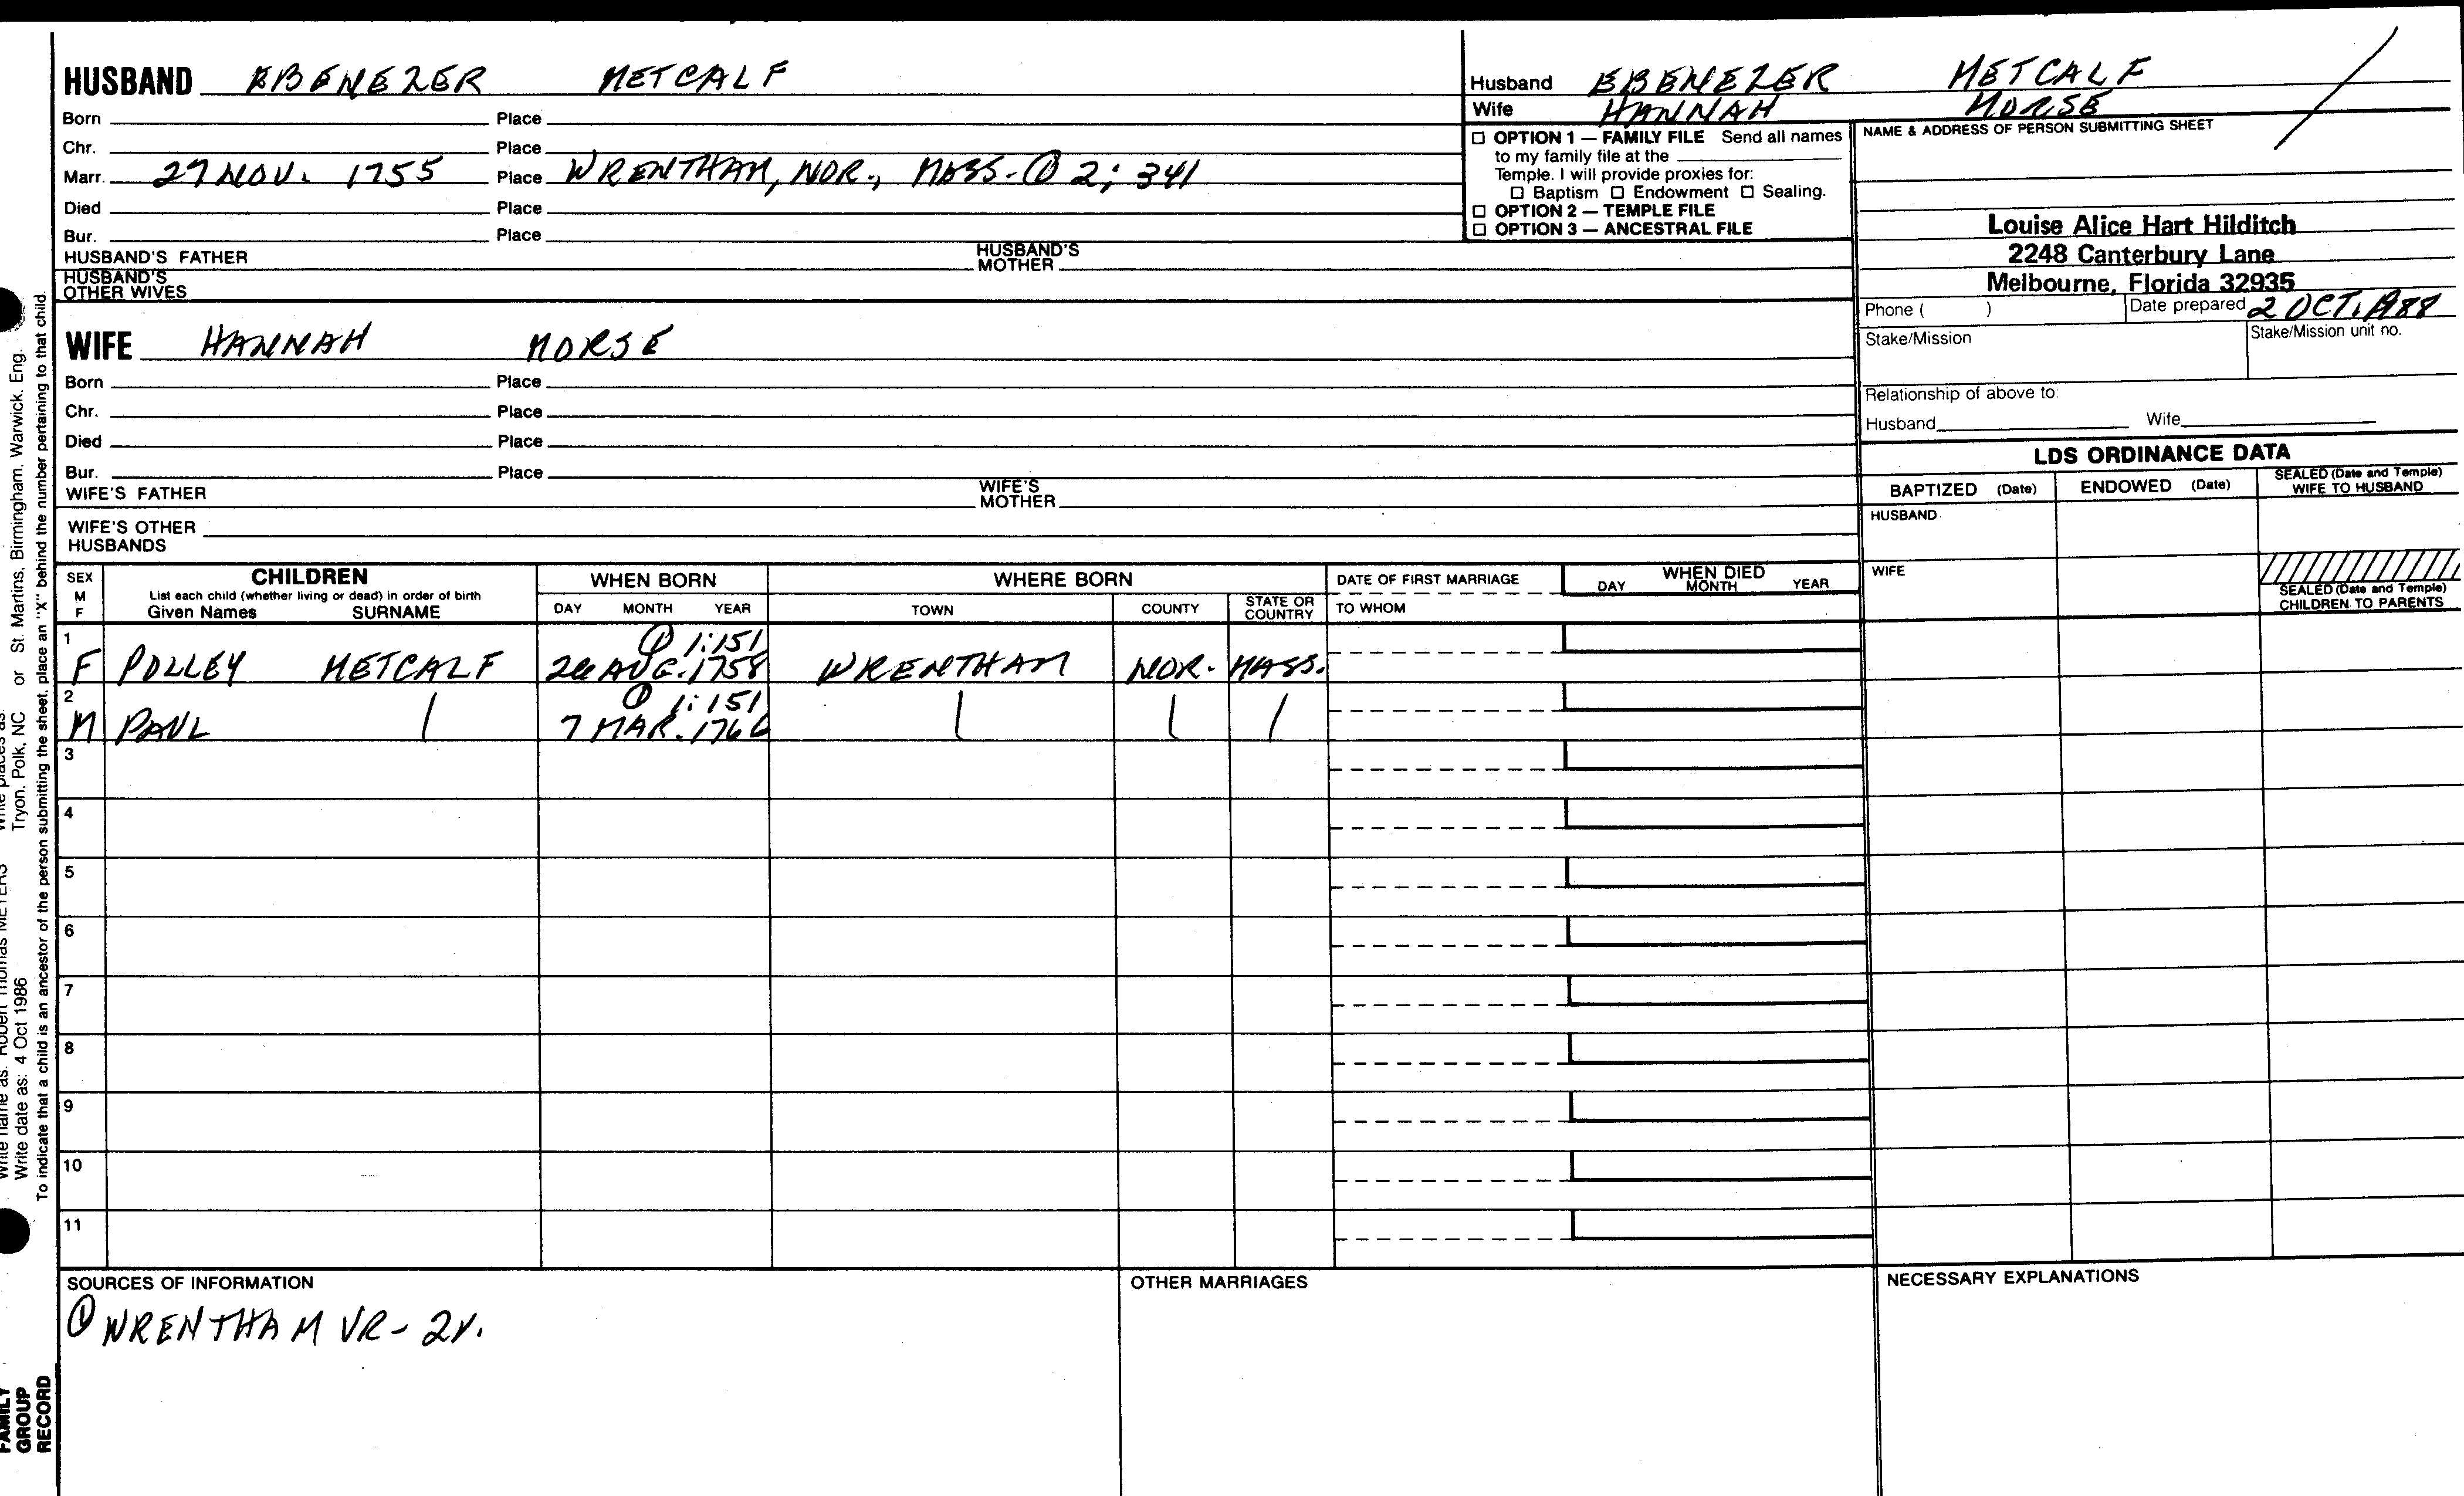 HUSBAND EBENEZER METCALF
Born Place
Chr. Place
Marr. 27 NOV. 1755 Place WRENTHAM, NOR., MASS. - ① 2; 341
Died Place
Bur. Place
HUSBAND'S FATHER HUSBAND'S MOTHER
HUSBAND'S OTHER WIVES
WIFE HANNAH MORSE
Born Place
Chr. Place
Died Place
Bur. Place
WIFE'S FATHER WIFE'S MOTHER
WIFE'S OTHER HUSBANDS
Husband EBENEZER METCALF
Wife HANNAH MORSE
☐ OPTION 1 — FAMILY FILE Send all names
to my family file at the
Temple. I will provide proxies for:
☐ Baptism ☐ Endowment ☐ Sealing.
☐ OPTION 2 — TEMPLE FILE
☐ OPTION 3 — ANCESTRAL FILE
NAME & ADDRESS OF PERSON SUBMITTING SHEET
Louise Alice Hart Hilditch
2248 Canterbury Lane
Melbourne, Florida 32935
Phone ( ) Date prepared 2 OCT. 1988
Stake/Mission Stake/Mission unit no.
Relationship of above to:
Husband Wife
LDS ORDINANCE DATA
BAPTIZED (Date) ENDOWED (Date) SEALED (Date and Temple) WIFE TO HUSBAND
HUSBAND
WIFE
SEALED (Date and Temple) CHILDREN TO PARENTS
SEX M F CHILDREN WHEN BORN WHERE BORN DATE OF FIRST MARRIAGE WHEN DIED
List each child (whether living or dead) in order of birth
Given Names SURNAME DAY MONTH YEAR TOWN COUNTY STATE OR COUNTRY TO WHOM DAY MONTH YEAR
1 ① 1:151
F POLLEY METCALF 26 AUG. 1758 WRENTHAM NOR. MASS.
2 ① 1:151
M PAUL 7 MAR. 1766
3
4
5
6
7
8
9
10
11
SOURCES OF INFORMATION
① WRENTHAM VR - 2V.
OTHER MARRIAGES
NECESSARY EXPLANATIONS
or St. Martins, Birmingham, Warwick, Eng.
Tryon, Polk, NC
Write date as: 4 Oct 1986
To indicate that a child is an ancestor of the person submitting the sheet, place an "X" behind the number pertaining to that child.
FAMILY
GROUP
RECORD